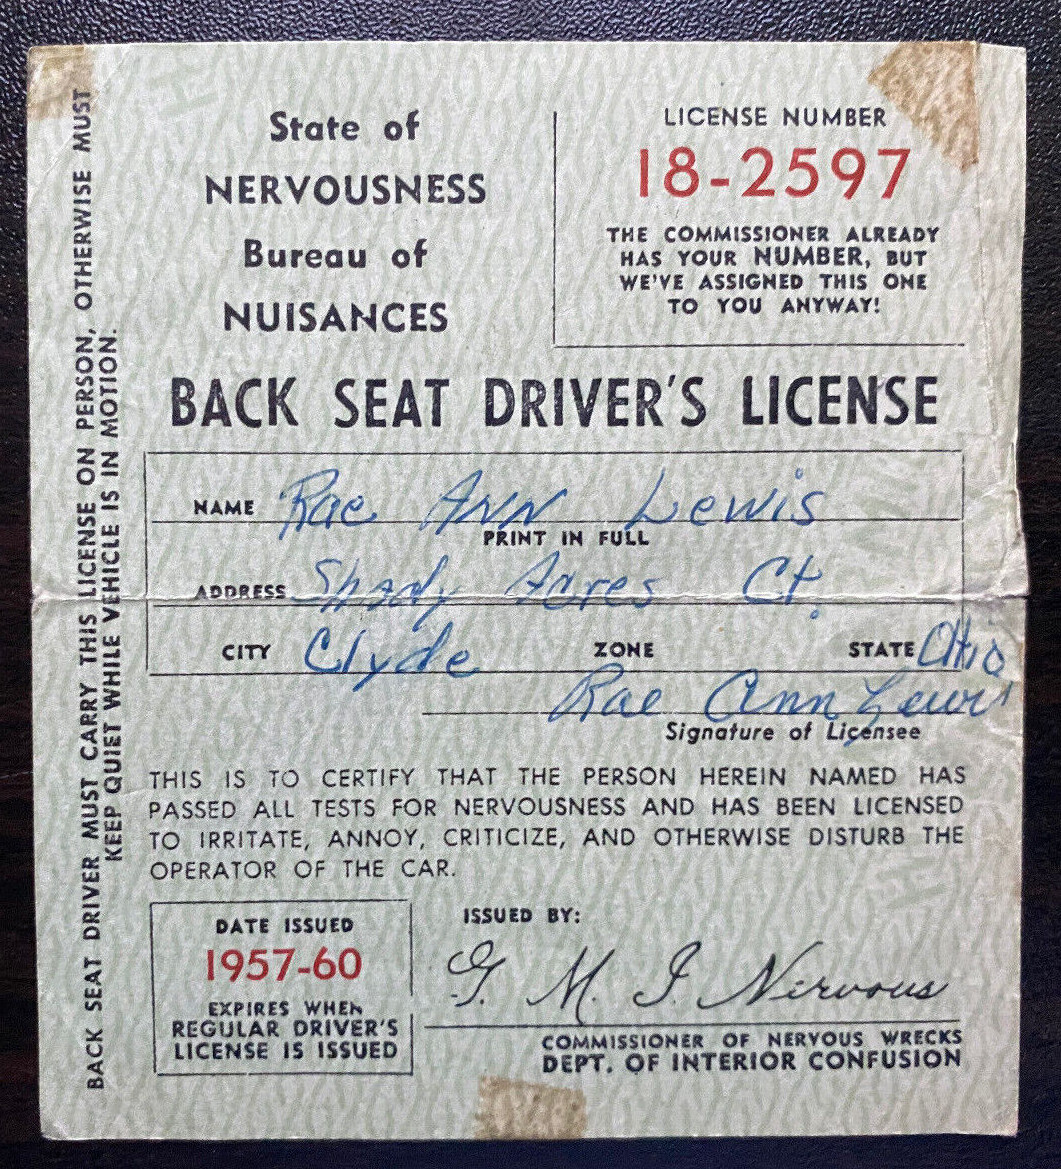 State of
NERVOUSNESS
Bureau of
NUISANCES
LICENSE NUMBER
18-2597
THE COMMISSIONER ALREADY
HAS YOUR NUMBER, BUT
WE'VE ASSIGNED THIS ONE
TO YOU ANYWAY!
BACK SEAT DRIVER'S LICENSE
NAME Rae Ann Lewis
PRINT IN FULL
ADDRESS Shady Acres Ct.
CITY Clyde ZONE STATE Ohio
Rae Ann Lewis
Signature of Licensee
THIS IS TO CERTIFY THAT THE PERSON HEREIN NAMED HAS
PASSED ALL TESTS FOR NERVOUSNESS AND HAS BEEN LICENSED
TO IRRITATE, ANNOY, CRITICIZE, AND OTHERWISE DISTURB THE
OPERATOR OF THE CAR.
DATE ISSUED
1957-60
EXPIRES WHEN
REGULAR DRIVER'S
LICENSE IS ISSUED
ISSUED BY:
G. M. I. Nervous
COMMISSIONER OF NERVOUS WRECKS
DEPT. OF INTERIOR CONFUSION
BACK SEAT DRIVER MUST CARRY THIS LICENSE ON PERSON, OTHERWISE MUST
KEEP QUIET WHILE VEHICLE IS IN MOTION.